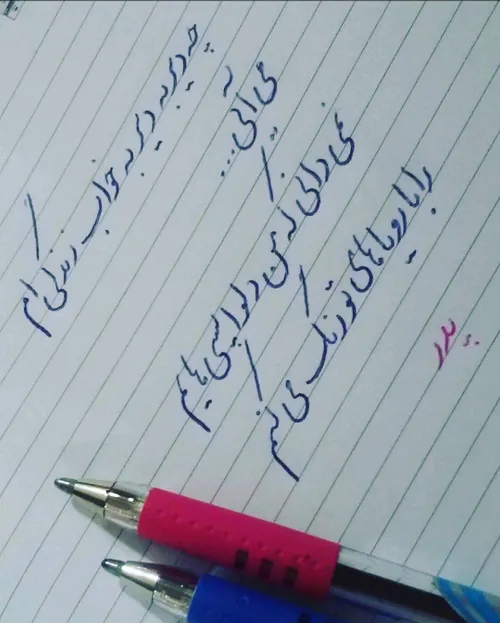 چه دیر به دیر به خواب زندگی ام
می آیی...
نمی دانی که من دلواپسی هایم
را با رویاهای تو رنگ می کنم
پدر